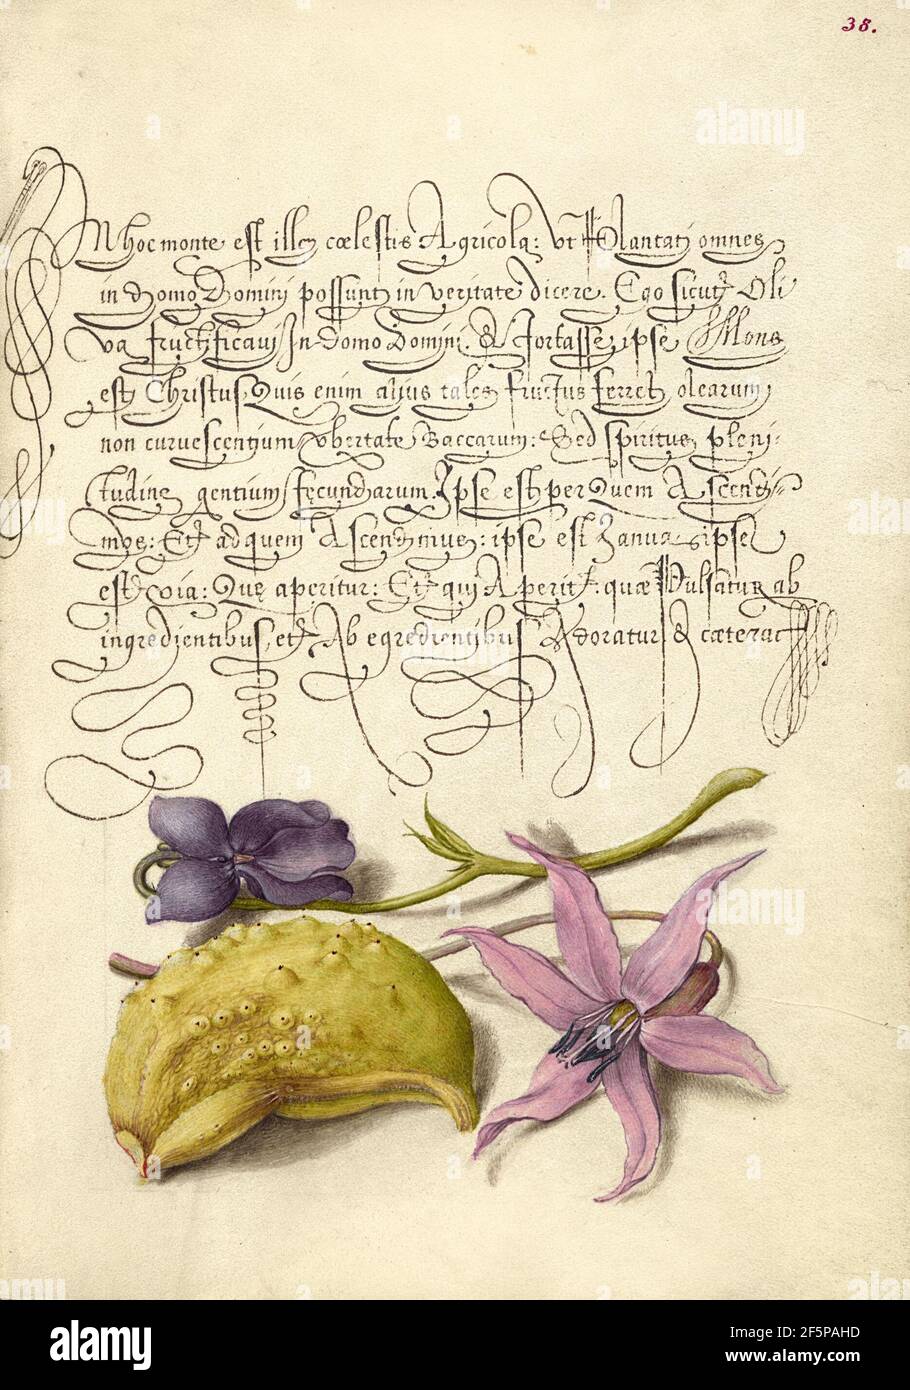 38.
In hoc monte est ille cœlestis Agricola: Ut Plantati omnes
in domo Domini possunt in veritate dicere. Ego sicut Oli
va fructificavi In domo Domini. & Fortasse ipse Mons
est Christus Quis enim alius tales fructus ferret olearum
non curvescentium Vbertate Baccarum: Sed spiritus pleni:
tudine gentium fecundarum. Ipse est per Quem Ascendi=
mus: Et ad quem Ascendimus: ipse est Ianua, ipse
est via: Quę aperitur: Et qui Aperit: quæ Pulsatur ab
ingredientibus, et Ab egredientibus Adoratur & cæterac
alamy
Image ID: 2F5PAHD
www.alamy.com